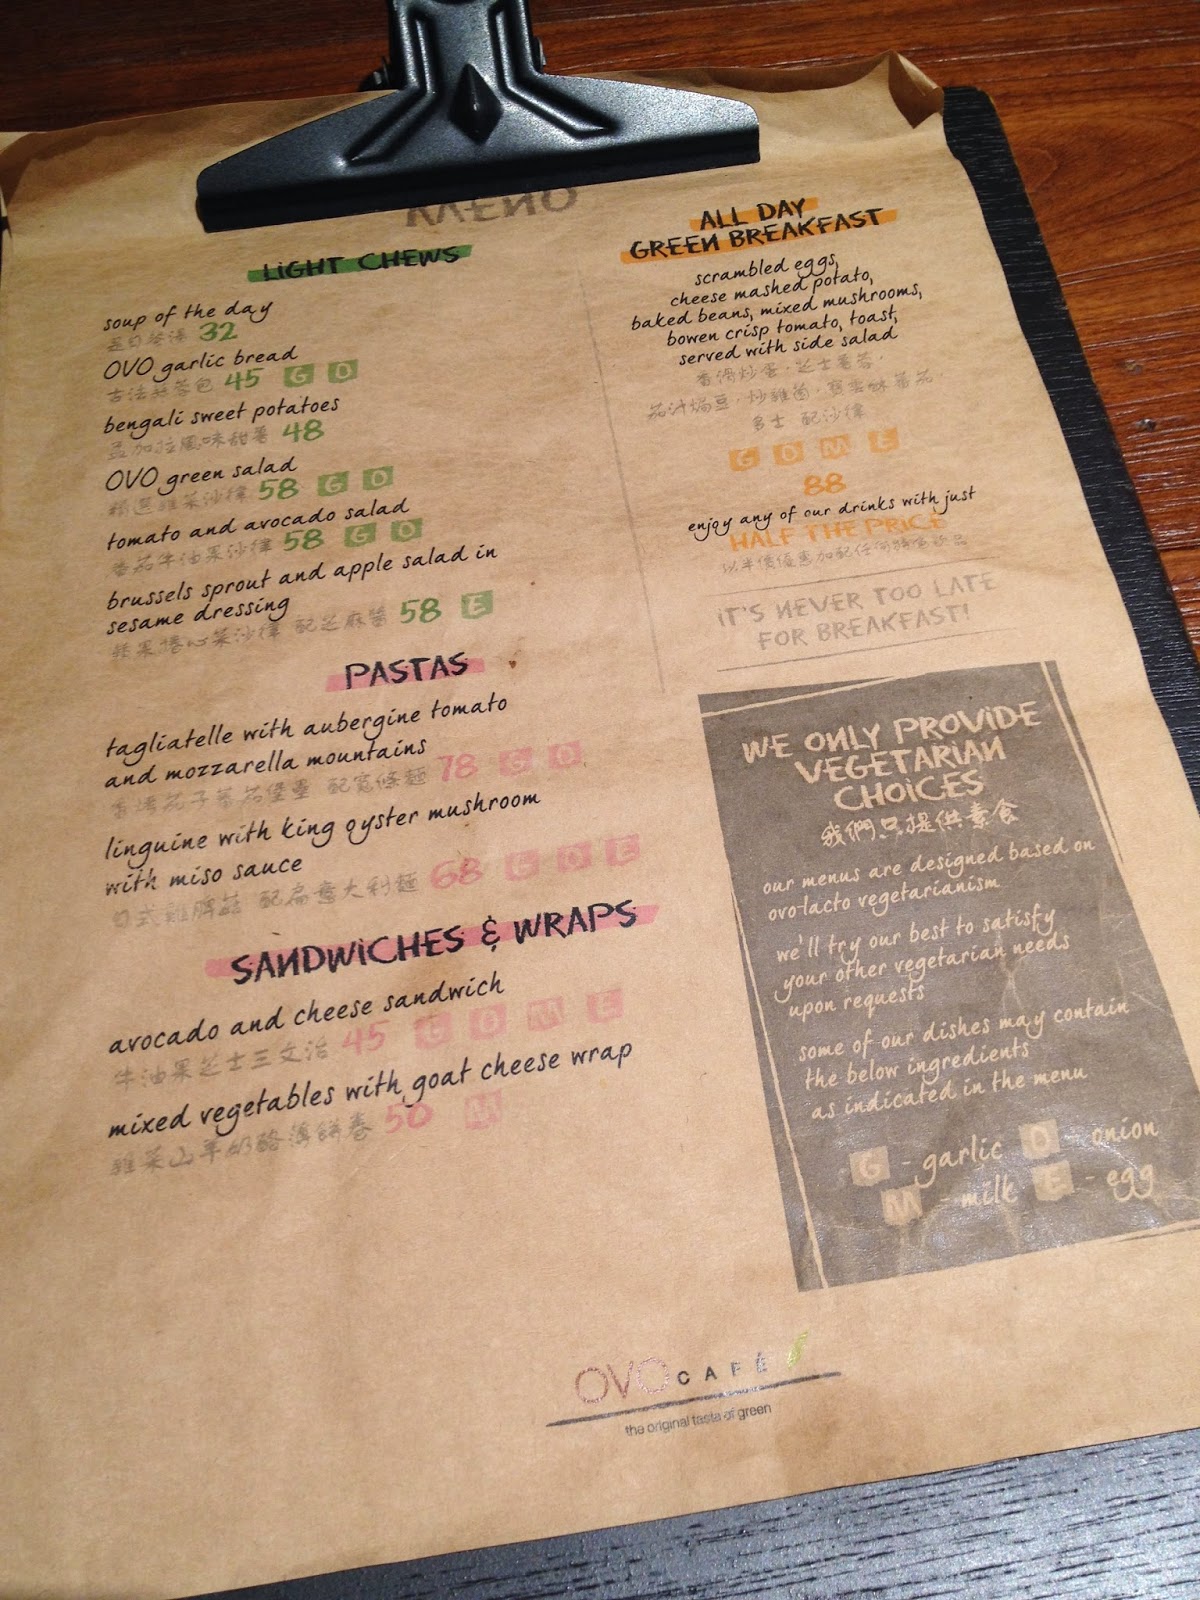 MENU
LIGHT CHEWS
soup of the day
32
OVO garlic bread
古法蒜蓉包 45 G O
bengali sweet potatoes
孟加拉風味甜薯 48
OVO green salad
精選雜菜沙律 58 G O
tomato and avocado salad
番茄牛油果沙律 58 G O
brussels sprout and apple salad in
sesame dressing
蘋果捲心菜沙律 配芝麻醬 58 E
PASTAS
tagliatelle with aubergine tomato
and mozzarella mountains
香烤茄子番茄堡壘 配寬條麵 78 G O
linguine with king oyster mushroom
with miso sauce
日式雞脾菇 配扁意大利麵 68 G O E
SANDWICHES & WRAPS
avocado and cheese sandwich
牛油果芝士三文治 45 G O M E
mixed vegetables with goat cheese wrap
雜菜山羊奶酪薄餅卷 50 M
ALL DAY
GREEN BREAKFAST
scrambled eggs,
cheese mashed potato,
baked beans, mixed mushrooms,
bowen crisp tomato, toast,
served with side salad
香滑炒蛋·芝士薯蓉·
茄汁焗豆·炒雜菌·寶雲酥番茄·
多士 配沙律
G O M E
88
enjoy any of our drinks with just
HALF THE PRICE
以半價優惠加配任何特色飲品
IT'S NEVER TOO LATE
FOR BREAKFAST!
WE ONLY PROVIDE
VEGETARIAN
CHOICES
我們只提供素食
our menus are designed based on
ovo-lacto vegetarianism
we'll try our best to satisfy
your other vegetarian needs
upon requests
some of our dishes may contain
the below ingredients
as indicated in the menu
G - garlic O - onion
M - milk E - egg
OVO CAFÉ
the original taste of green